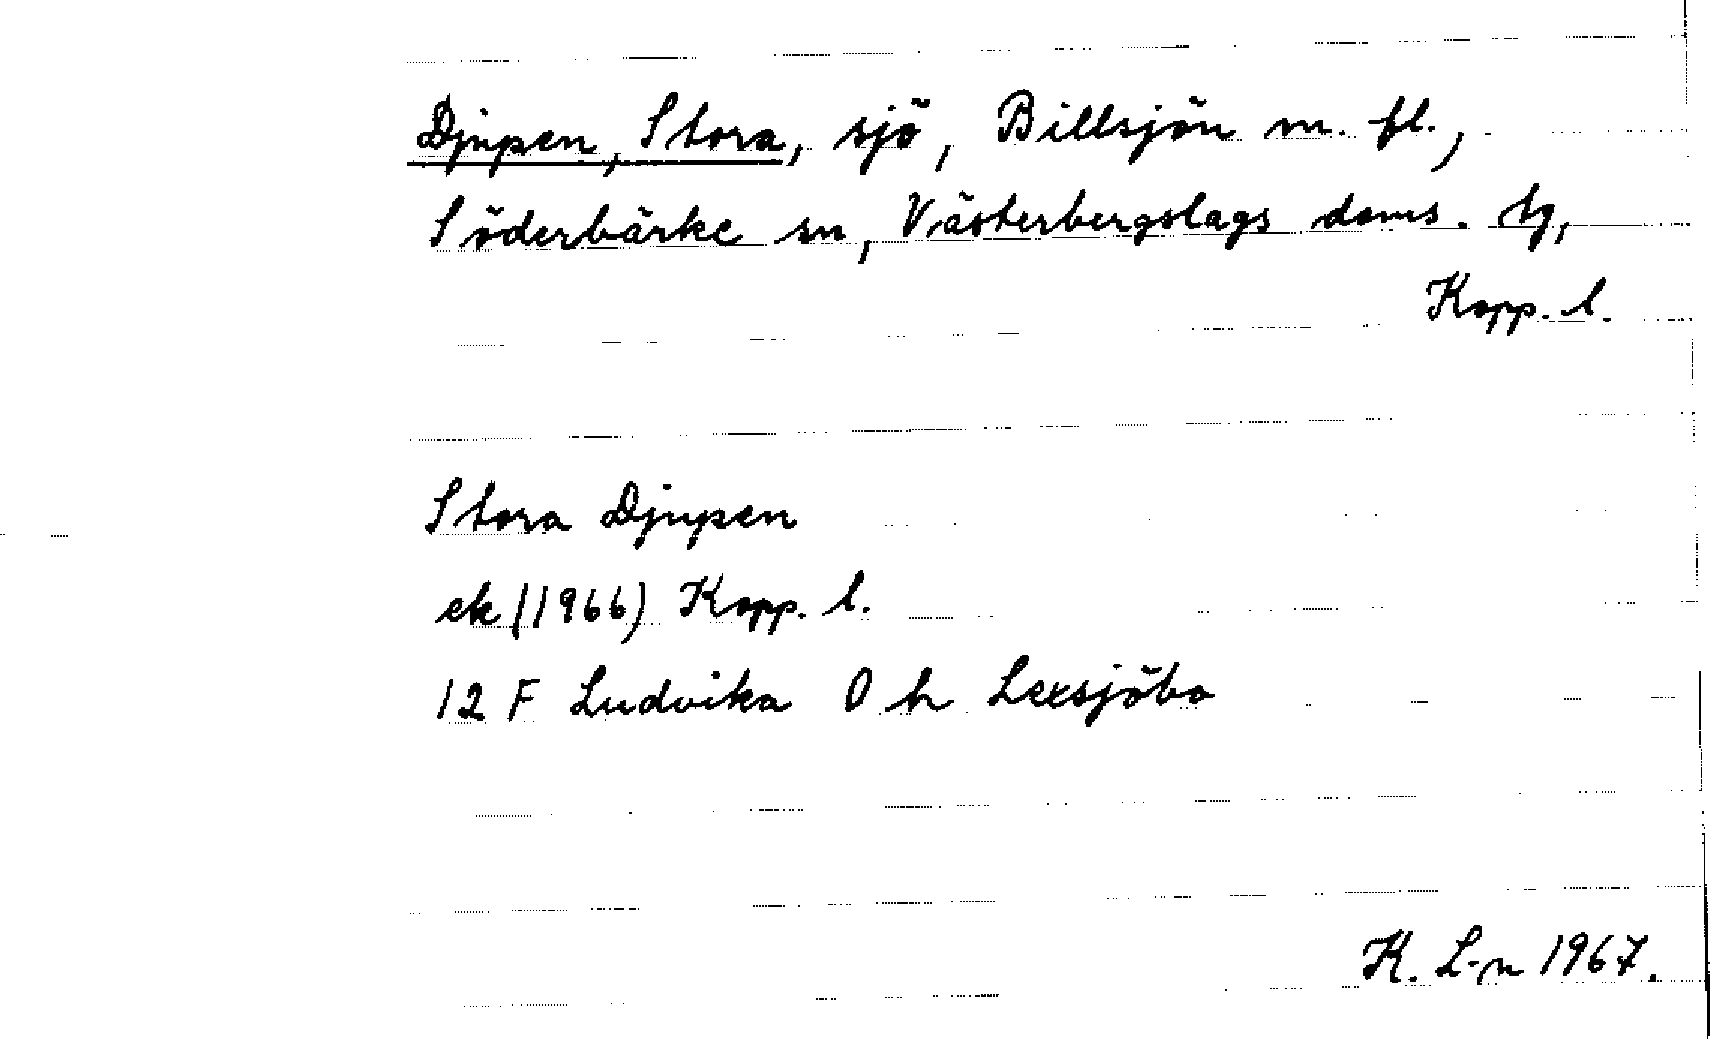 Djupen, Stora, sjö, Billsjön m. fl.,
Söderbärke sn, Västerbergslags doms. tg,
Kopp. l.
Stora Djupen
ek (1966) Kopp. l.
12 F Ludvika 0 h Lexsjöbo
K. L-n 1967.